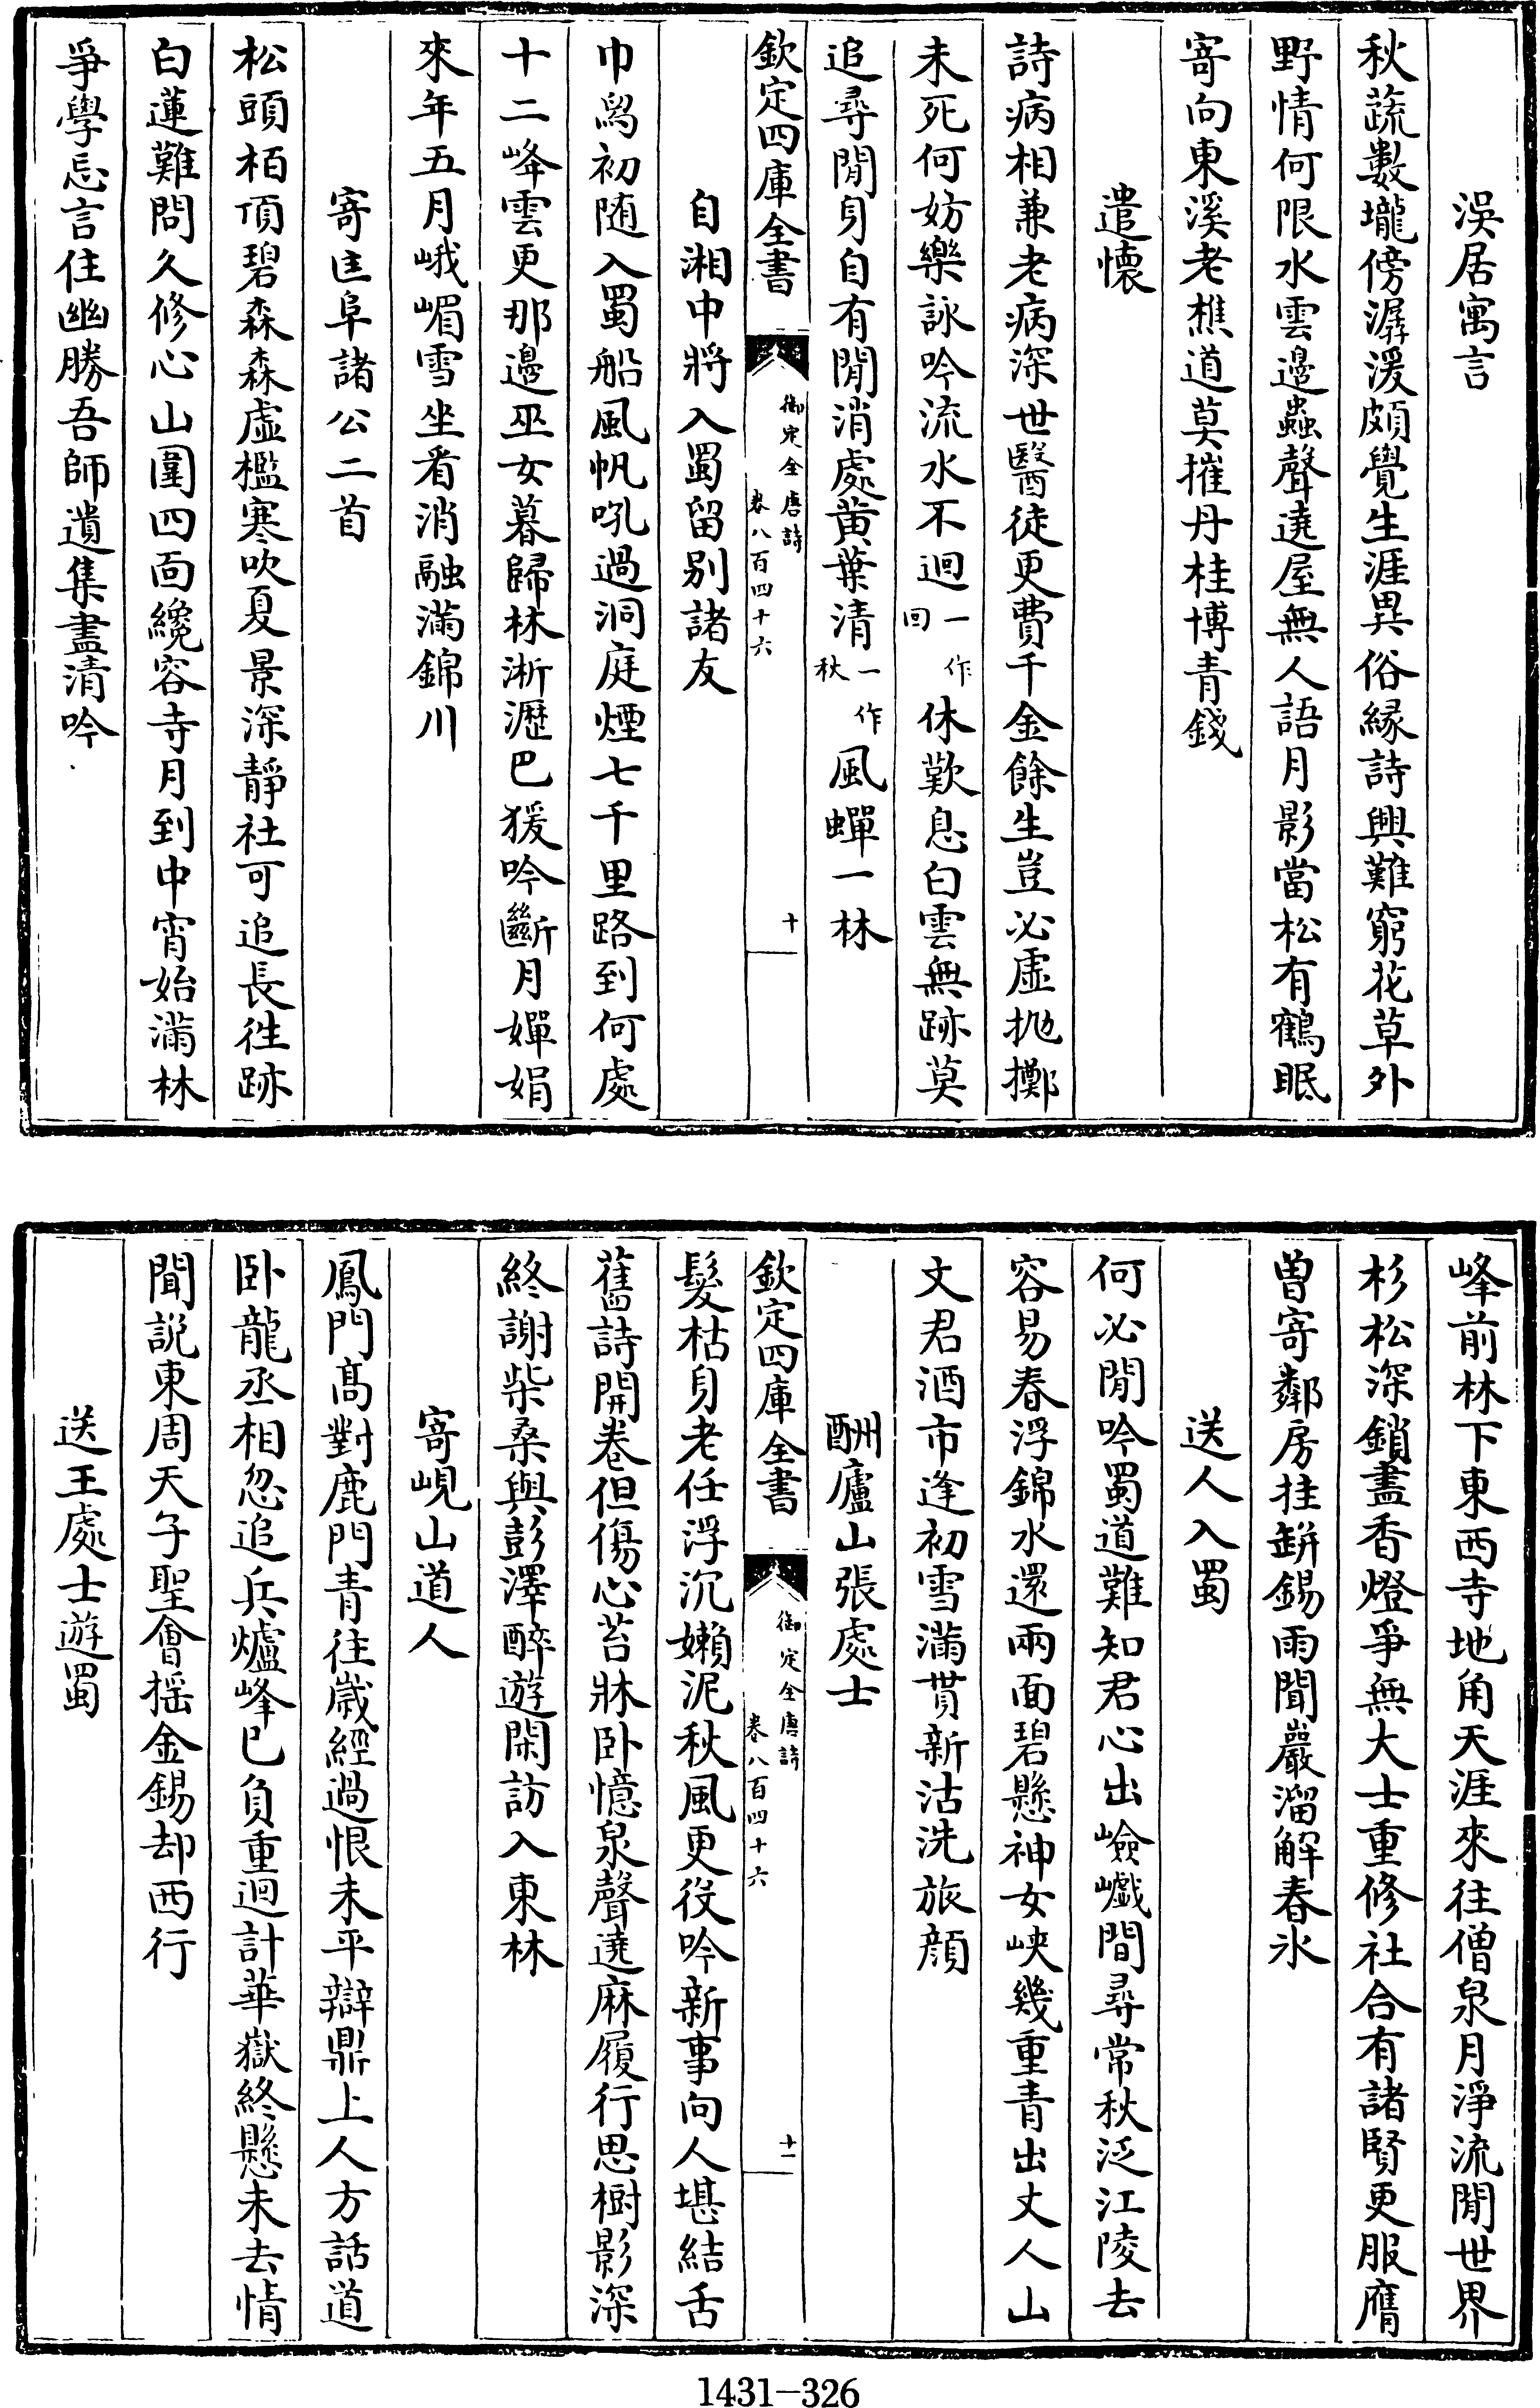 渼居寓言
秋蔬數壠傍潺湲頗覺生涯異俗緣詩興難窮花草外
野情何限水雲邊蟲聲遶屋無人語月影當松有鶴眠
寄向東溪老樵道莫摧丹桂博青錢
遣懷
詩病相兼老病深世醫徒更費千金餘生豈必虛拋擲
未死何妨樂詠吟流水不迴一作回休歎息白雲無跡莫
追尋閒身自有閒消處黄葉清一作秋風蟬一林
欽定四庫全書 御定全唐詩 卷八百四十六 十
自湘中將入蜀留别諸友
巾舄初随入蜀船風帆吼過洞庭煙七千里路到何處
十二峰雲更那邊巫女暮歸林淅瀝巴猨吟斷月嬋娟
來年五月峨嵋雪坐看消融滿錦川
寄匡阜諸公二首
松頭栢頂碧森森虛檻寒吹夏景深靜社可追長徃跡
白蓮難問久修心山圍四面纔容寺月到中宵始滿林
爭學忘言住幽勝吾師遺集盡清吟
峰前林下東西寺地角天涯來往僧泉月淨流閒世界
杉松深鎖晝香燈爭無大士重修社合有諸賢更服膺
曽寄鄰房挂缾錫雨聞巖溜解春氷
送人入蜀
何必閒吟蜀道難知君心出嶮巇間尋常秋泛江陵去
容易春浮錦水還兩面碧懸神女峽幾重青出丈人山
文君酒市逢初雪滿貰新沽洗旅顔
酬廬山張處士
髮枯身老任浮沉嬾泥秋風更役吟新事向人堪結舌
舊詩開卷但傷心苔牀卧憶泉聲遶麻履行思樹影深
終謝柴桑與彭澤醉遊閑訪入東林
寄峴山道人
鳳門髙對鹿門青往嵗經過恨未平辯鼎上人方話道
卧龍丞相忽追兵爐峰已負重迴計華嶽終懸未去情
聞説東周天子聖會摇金錫却西行
送王處士遊蜀
欽定四庫全書 御定全唐詩 卷八百四十六 十一
1431-326